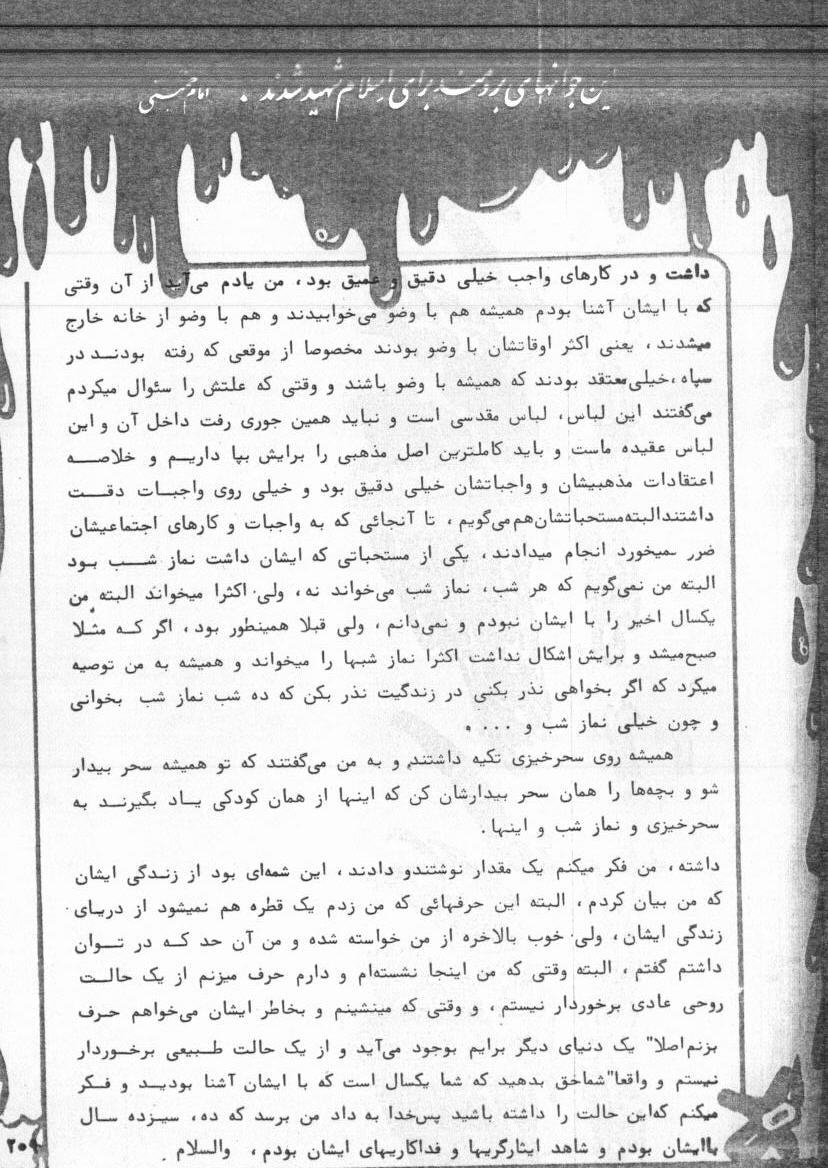 این جوانهای برومند برای اسلام شهید شدند . امام خمینی
داشت و در کارهای واجب خیلی دقیق و عمیق بود ، من یادم می‌آید از آن وقتی
که با ایشان آشنا بودم همیشه هم با وضو می‌خوابیدند و هم با وضو از خانه خارج
میشدند ، یعنی اکثر اوقاتشان با وضو بودند مخصوصا از موقعی که رفته بودنـد در
سپاه ،خیلی معتقد بودند که همیشه با وضو باشند و وقتی که علتش را سئوال میکردم
می‌گفتند این لباس، لباس مقدسی است و نباید همین جوری رفت داخل آن و این
لباس عقیده ماست و باید کاملترین اصل مذهبی را برایش بپا داریـم و خلاصـه
اعتقادات مذهبیشان و واجباتشان خیلی دقیق بود و خیلی روی واجبـات دقـت
داشتندالبته‌مستحباتشان‌هم‌می‌گویم ، تا آنجائی که به واجبات و کارهای اجتماعیشان
ضرر نمیخورد انجام میدادند، یکی از مستحباتی که ایشان داشت نماز شـب بـود
البته من نمی‌گویم که هر شب، نماز شب می‌خواند نه، ولی اکثرا میخواند البته من
یکسال اخیر را با ایشان نبودم و نمی‌دانم ، ولی قبلا همینطور بود، اگر کـه مثـلا
صبح‌میشد و برایش اشکال نداشت اکثرا نماز شبها را میخواند و همیشه به من توصیه
میکرد که اگر بخواهی نذر بکنی در زندگیت نذر بکن که ده شب نماز شب بخوانی
و چون خیلی نماز شب و ... .
همیشه روی سحرخیزی تکیه داشتند و به من می‌گفتند که تو همیشه سحر بیدار
شو و بچه‌ها را همان سحر بیدارشان کن که اینها از همان کودکی یـاد بگیرنـد به
سحرخیزی و نماز شب و اینها .
داشته ، من فکر میکنم یک مقدار نوشتندو دادند ، این شمه‌ای بود از زنـدگی ایشان
که من بیان کردم ، البته این حرفهائی که من زدم یک قطره هم نمیشود از دریـای
زندگی ایشان، ولی خوب بالاخره از من خواسته شده و من آن حد کـه در تـوان
داشتم گفتم ، البته وقتی که من اینجا نشسته‌ام و دارم حرف میزنم از یک حالـت
روحی عادی برخوردار نیستم ، و وقتی که مینشینم و بخاطر ایشان می‌خواهم حـرف
بزنم‌اصلا" یک دنیای دیگر برایم بوجود می‌آید و از یک حالت طـبیعی برخـوردار
نیستم و واقعا"شماحق بدهید که شما یکسال است که با ایشان آشنا بودیـد و فـکر
میکنم که‌این حالت را داشته باشید پس‌خدا به داد من برسد که ده، سیـزده سـال
باایشان بودم و شاهد ایثارگریها و فداکاریهای ایشان بودم ، والسلام .